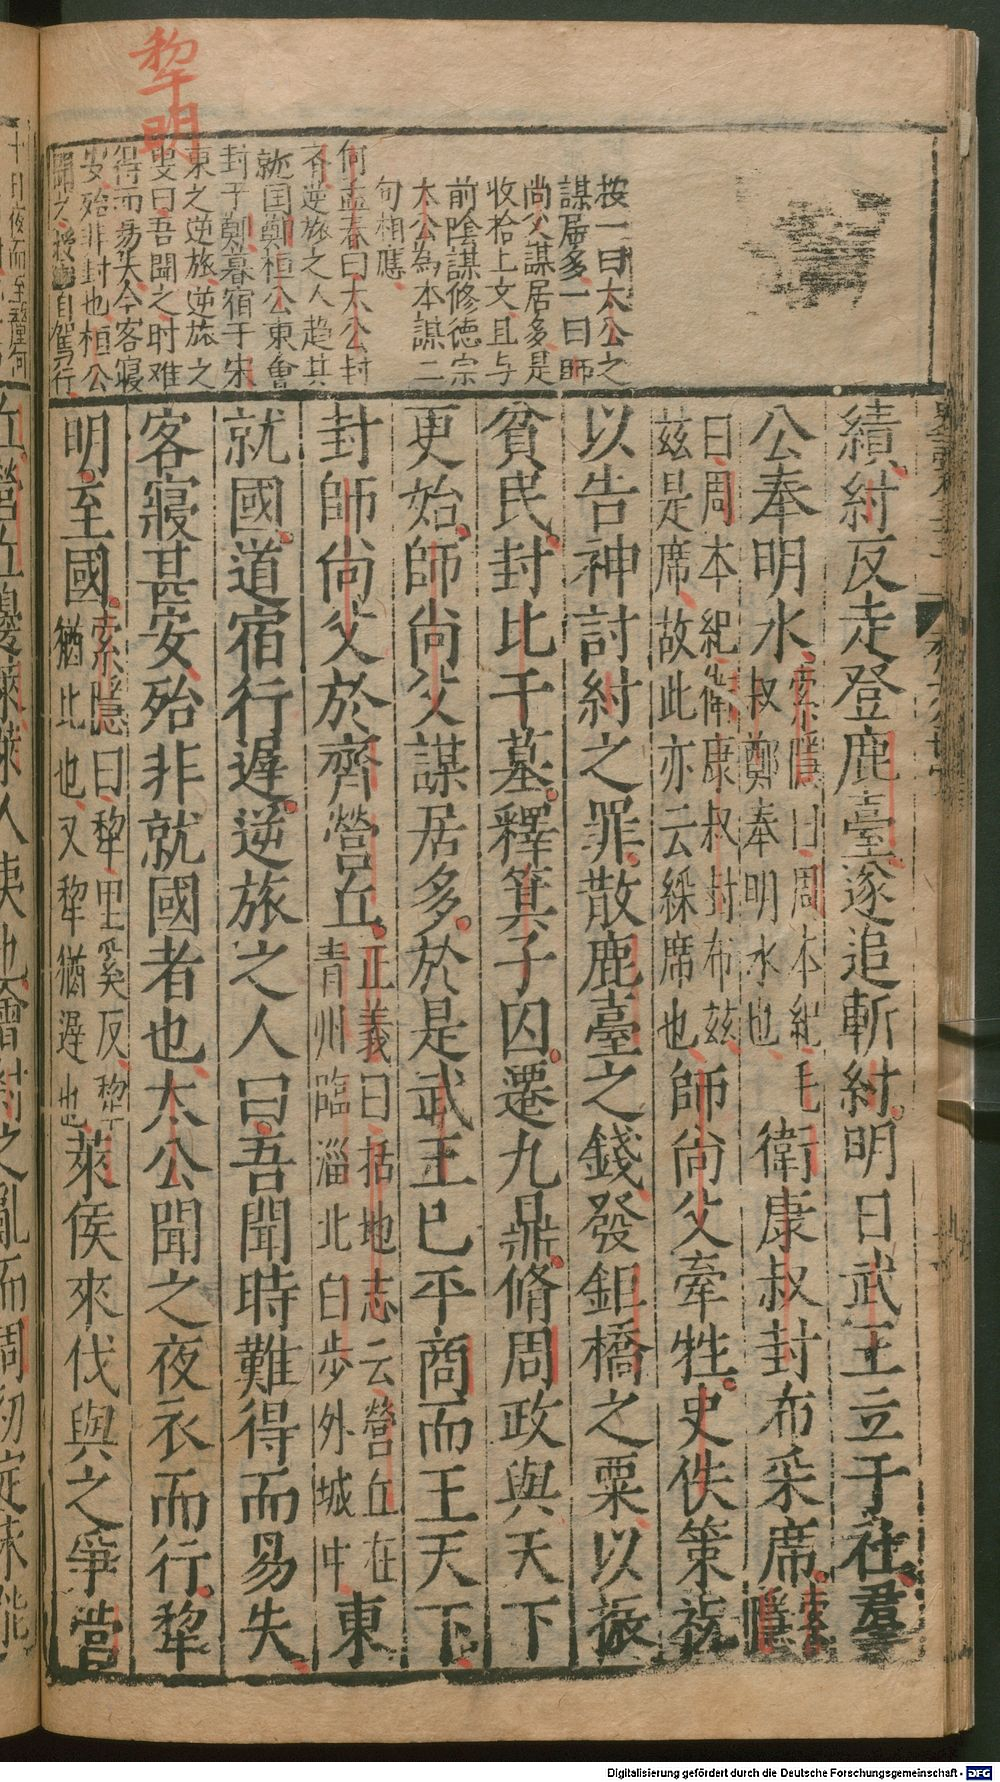 犂明
按一曰太公之
謀居多一曰師
尚父謀居多是
收拾上文且与
前陰謀修徳宗
太公為本謀二
句相應
何孟春曰太公封
齐逆旅之人趋其
就国鄭桓公東會
封于鄭暮宿于宋
東之逆旅逆旅之
叟曰吾聞之时难
得而易失今客寝
安殆非封也桓公
聞之援轡自駕行
績紂反走登鹿臺遂追斬紂明日武王立于社羣
公奉明水
索隱曰周本紀毛
叔鄭奉明水也
衛康叔封布采席
索
隱
曰周本紀衛康叔封布兹
兹是席故此亦云綵席也
師尚父牽牲史佚策祝
以告神討紂之罪散鹿臺之錢發鉅橋之粟以振
貧民封比干墓釋箕子囚遷九鼎脩周政與天下
更始師尚父謀居多於是武王已平商而王天下
封師尚父於齊營丘
正義曰括地志云營丘在
青州臨淄北百步外城中
東
就國道宿行遲逆旅之人曰吾聞時難得而易失
客寝甚安殆非就國者也太公聞之夜衣而行犂
明至國
索隱曰犂里奚反犂
猶比也又犂猶遲也
萊侯來伐與之爭營
丘營丘邊萊萊人夷也會紂之亂而周初定未能
Digitalisierung gefördert durch die Deutsche Forschungsgemeinschaft - DFG